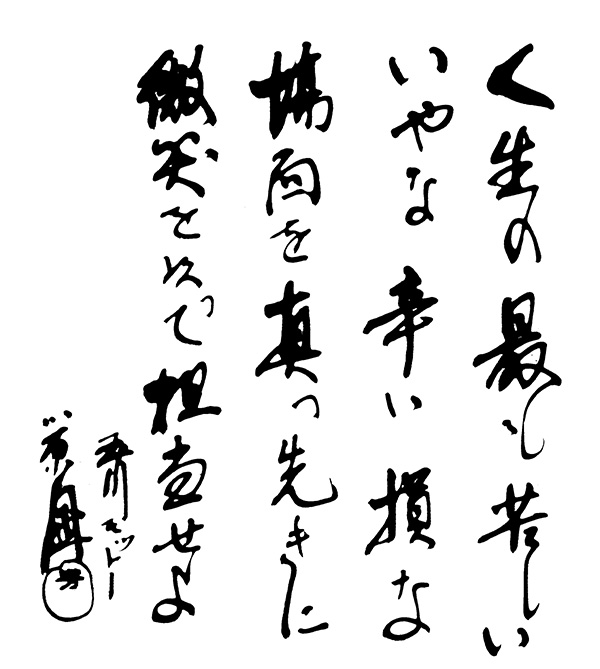 人生の最も苦しい
いやな辛い損な
場面を真っ先きに
微笑を以って担当せよ
モットー
小原國芳